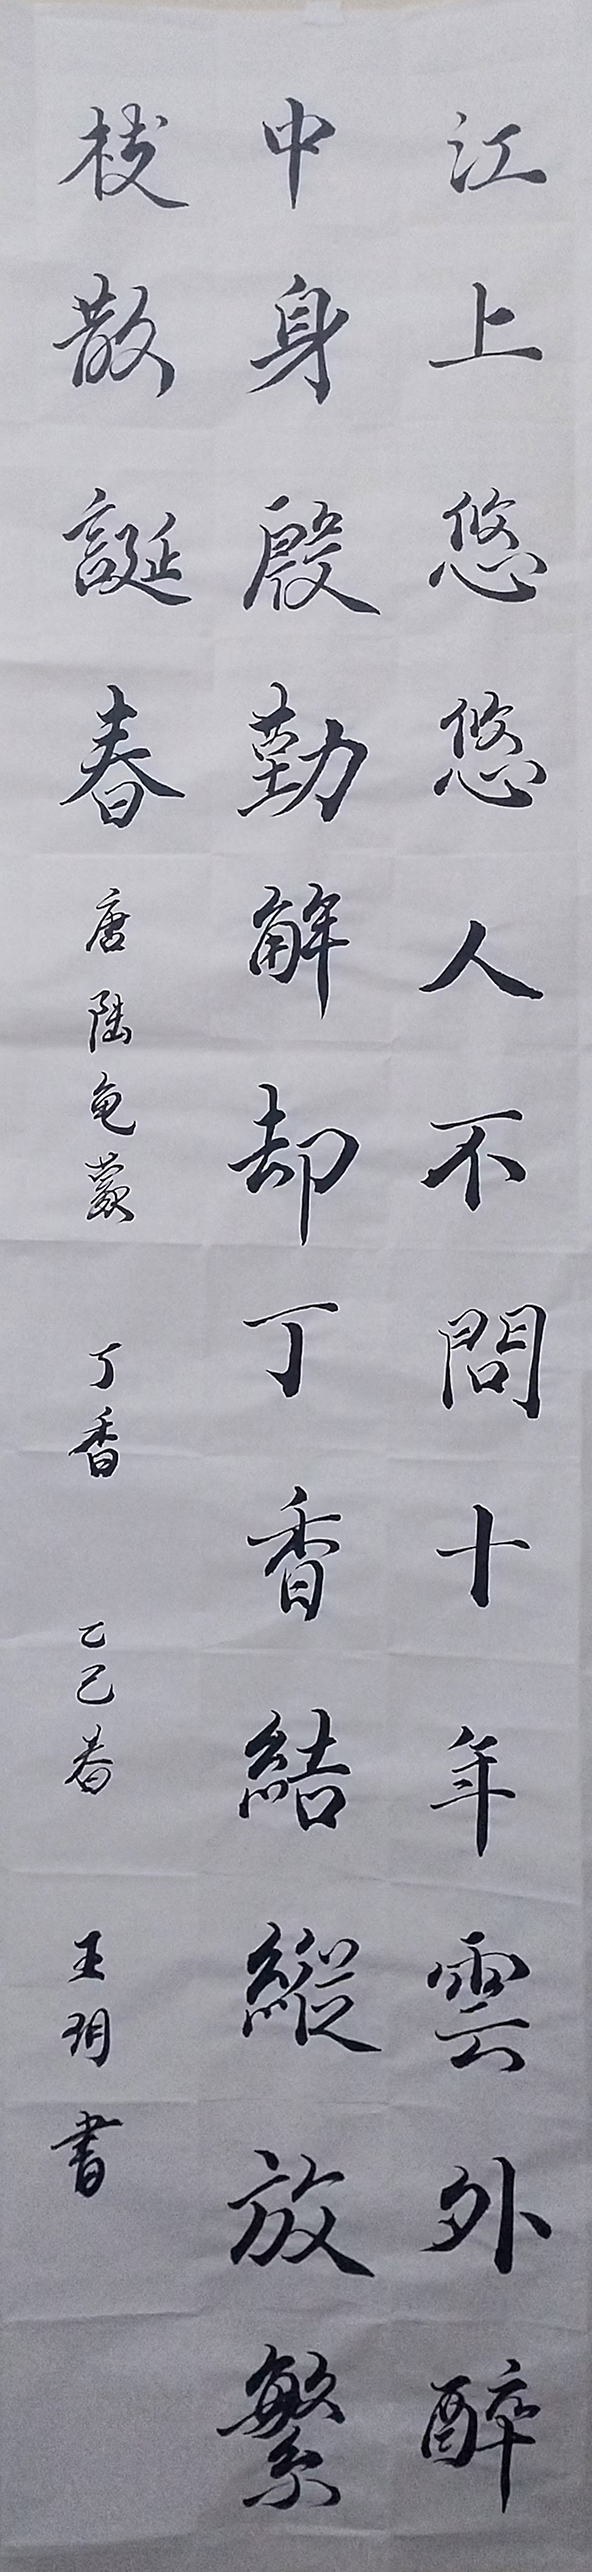 江上悠悠人不問十年雲外醉
中身殷勤解却丁香結縱放繁
枝散誕春唐陆龟蒙丁香乙巳春王玥書